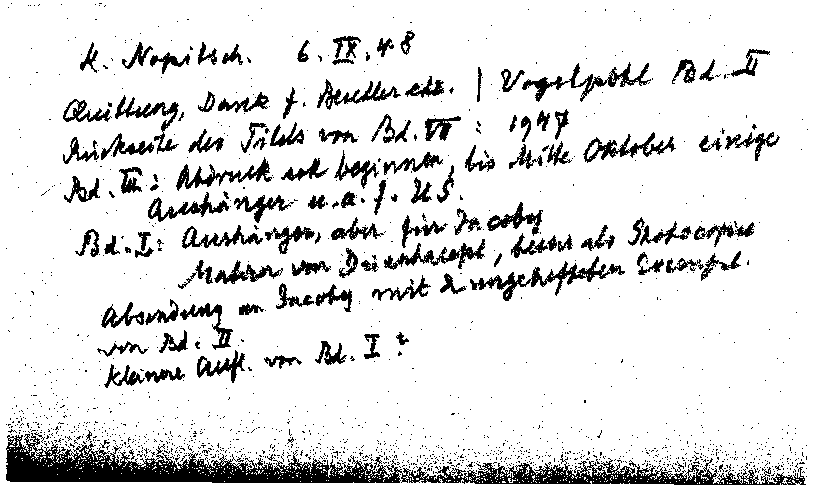 K. Nopitsch. 6. IX. 48
Quittung, Dank f. Besedler etc. | Vogelpohl Bd. II
Rückseite des Titels von Bd. VII : 1947
Bd. III : Abdruck soll beginnen, bis Mitte Oktober einige
Aushänger u. a. f. US.
Bd. I : Aushänger, aber für Jacoby
Matern von, besser als Photocopie
Absendung an Jacoby mit 2 ungehefteten Exempl.
von Bd. II.
Kleinere Aufl. von Bd. I ?